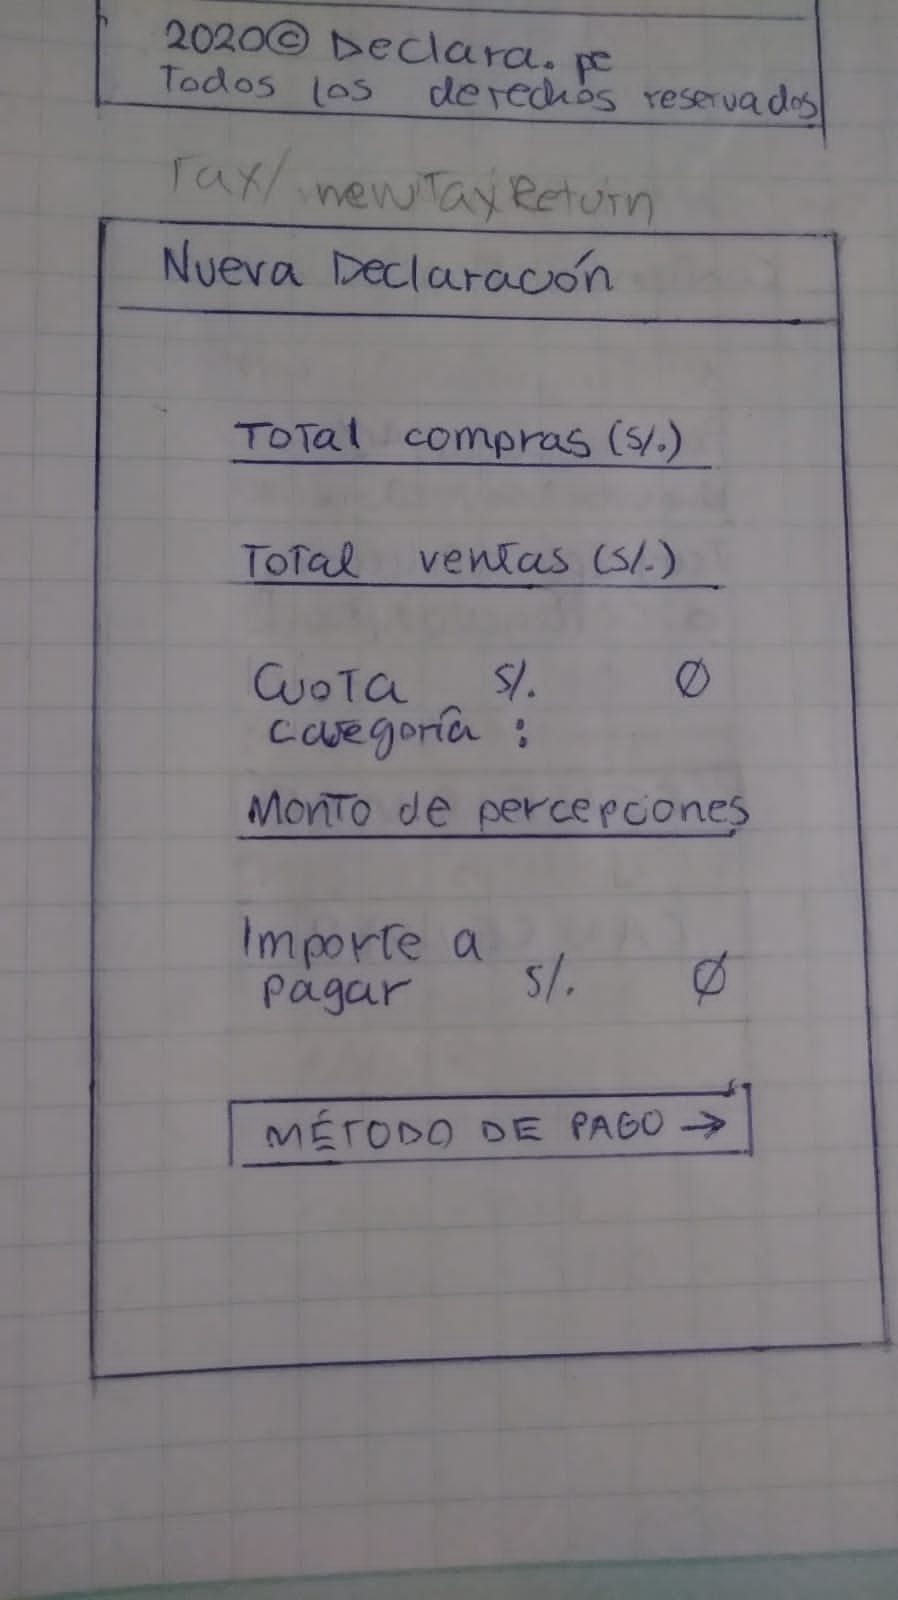 2020© Declara.pe
Todos los derechos reservados
Tax/newTaxReturn
Nueva Declaración
Total compras (S/.)
Total ventas (S/.)
Cuota S/. 0
categoría :
Monto de percepciones
Importe a
pagar S/. 0
MÉTODO DE PAGO →